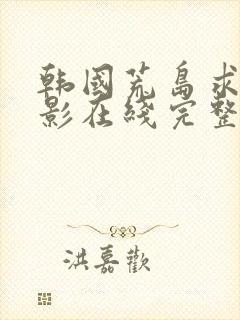 韩国荒岛求
影在线完整
洪嘉欢